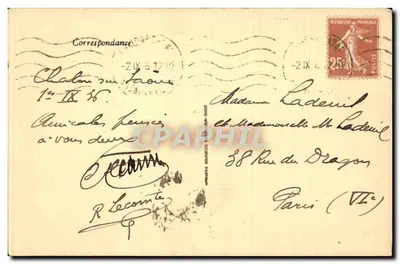 Correspondance
REPUBLIQUE FRANÇAISE
25c
POSTES
-2 IX 6
Chalon sur Saône
1er IX 36
Amicales pensées
à vous deux
R Lecointe
Madame Ladeuil
et Mademoiselle M Ladeuil
38 Rue du Dragon
Paris (VIe)
CPAPHIL